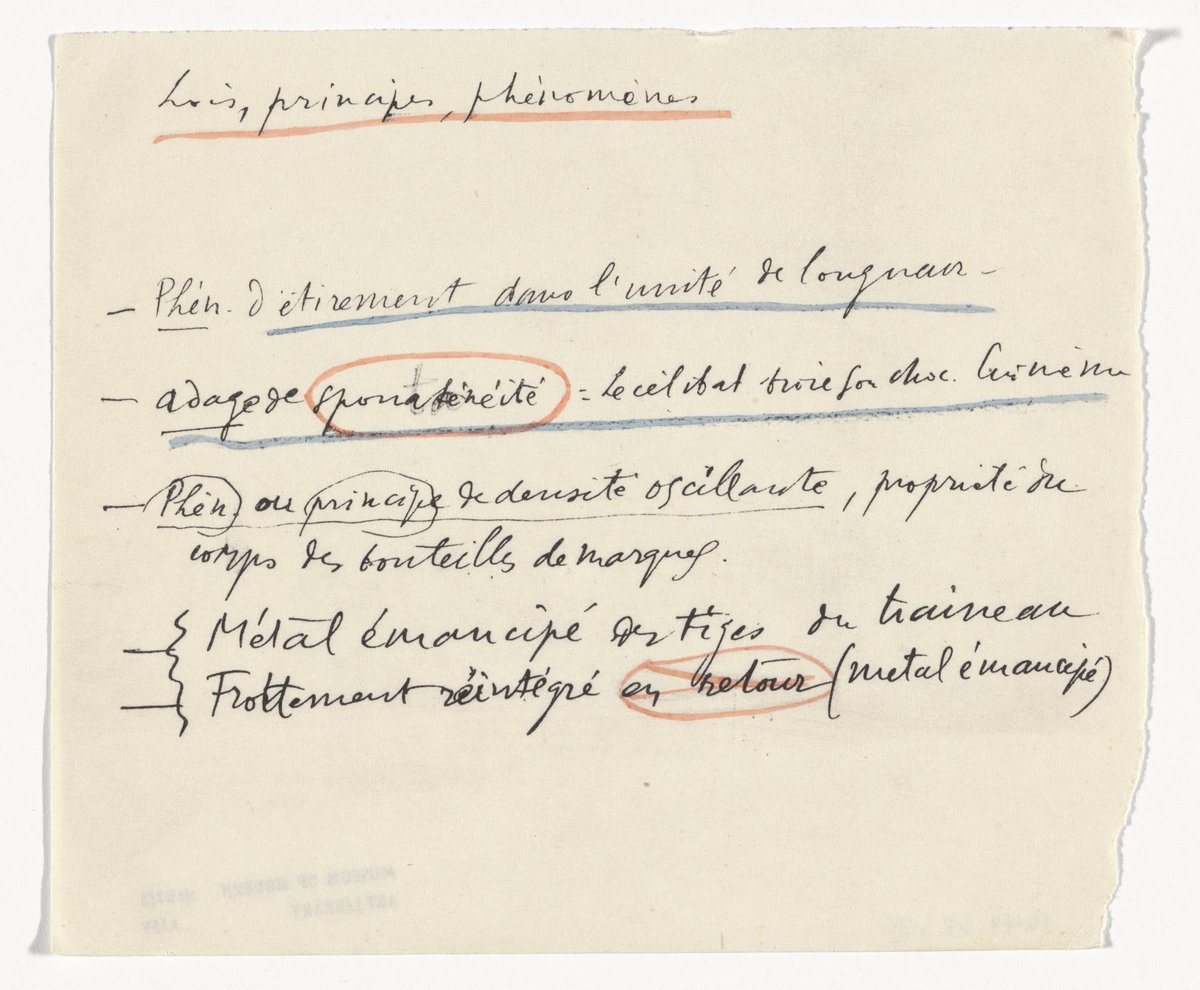 Lois, principes, phénomènes
— Phén. D'étirement dans l'unité de longueur —
— adage de spontanéité = Le célibat. broie son choc. lui même
— Phén. ou principe de densité oscillante, propriété du
corps des bouteilles de marques.
— { Métal émancipé des tiges du traineau
— { Frottement réintégré en retour (métal émancipé)